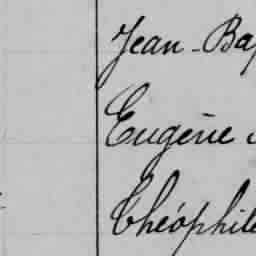 Jean-Bap
Eugène
Théophile